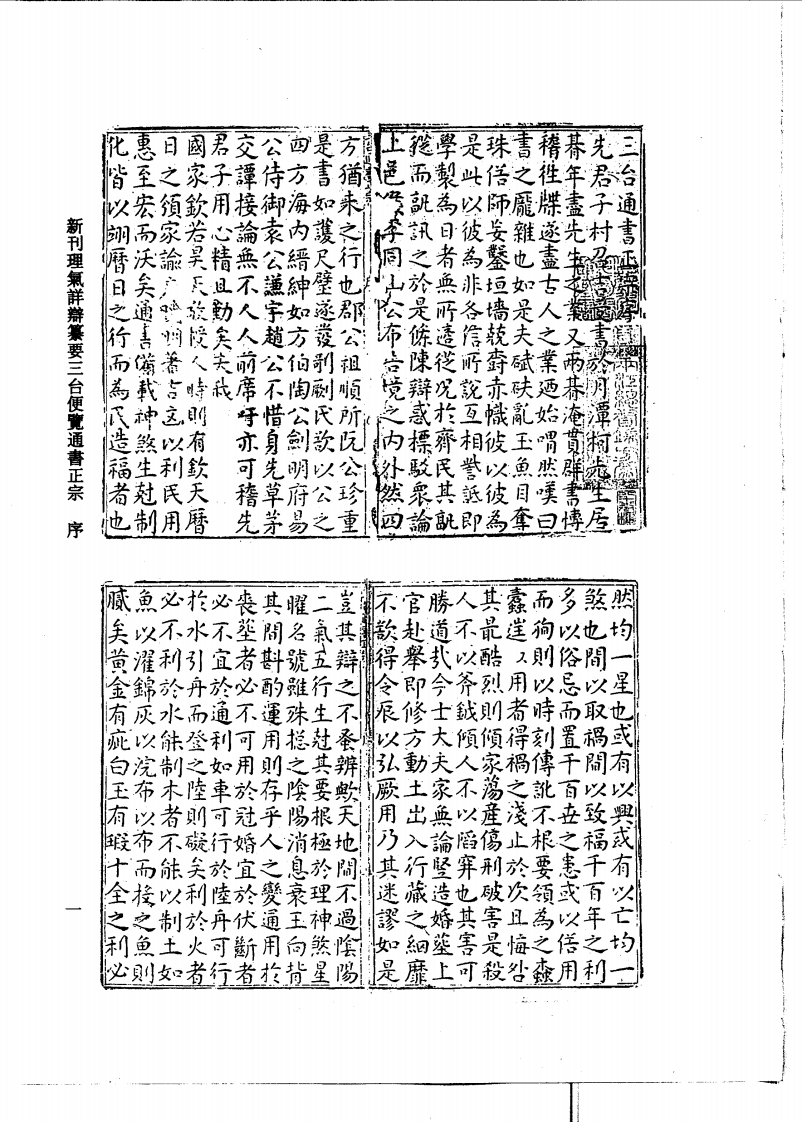 三台通書正宗序
先君子村乃言書於月潭柯先生居
朞年盡先生之業又兩朞淹貫群書博
稽徃牒遂盡古人之業廼始喟然嘆曰
書之龐雜也如是夫碔砆亂玉魚目奪
珠俗師妄鑿垣墻競齊赤幟彼以彼為
是此以彼為非各信所說互相譽詆即
學製為日者無所適從况於齊民其訛
從而訊之於是條陳辯惑標駁衆論
上邑 李同山公布告境之内外然四
方猶來之行也郡公祖順所阮公珍重
是書如護尺璧遂發剞劂氏欲以公之
四方海内縉紳如方伯陶公劍明府易
公侍御袁公謙宇趙公不惜身先草茅
交譚接論無不人人前席吁亦可稽先
君子用心精且勤矣夫我
國家欽若昊天敬授人時則有欽天曆
日之頒家諭 著吉凶以利民用
惠至宏而沃矣通書備載神煞生尅制
化皆以翊曆日之行而為民造福者也
然均一星也或有以興或有以亡均一
煞也間以取禍間以致福千百年之利
多以俗忌而置千百世之患或以俗用
而徇則以時刻傳訛不根要領為之森
蠹逹又用者得禍之淺止於次且悔吝
其最酷烈則傾家蕩産傷刑破害是殺
人不以斧鉞傾人不以陷穽也其害可
勝道㦲今士大夫家無論竪造婚塟上
官赴舉即修方動土出入行藏之細靡
不欲得令辰以弘厥用乃其迷謬如是
豈其辯之不蚤辨歟天地間不過陰陽
二氣五行生尅其要根極於理神煞星
曜名號雖殊揔之陰陽消息衰王向背
其問斟酌運用則存乎人之變通用於
喪塟者必不可用於冠婚宜於伏斷者
必不宜於通利如車可行於陸舟可行
於水引舟而登之陸則礙矣利於火者
必不利於水能制木者不能以制土如
魚以濯錦灰以浣布以布而投之魚則
膩矣黃金有疵白玉有瑕十全之利必
新刊理氣詳辯纂要三台便覽通書正宗 序
一